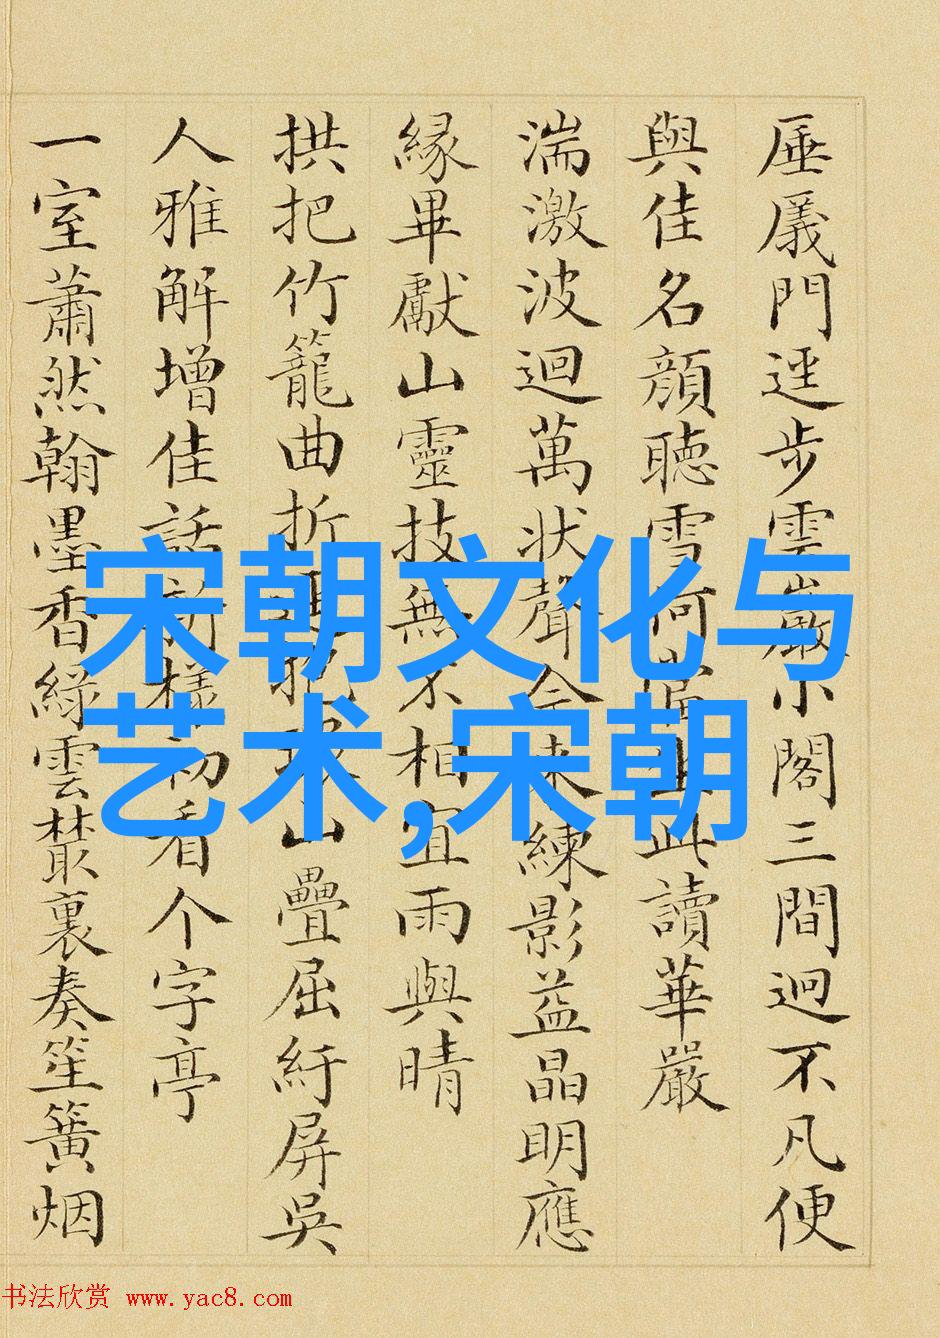 厜㕒門逕步雲巖小閣三間迥不凡便
與佳名顏聽雪何當此讀華嚴
湍激波迴萬狀聲今來練影益晶明應
緣畢獻山靈技無不相宜雨與晴
拱把竹籠曲折山疊屈紆屏吳
人雅解增佳話新樣初看个字亭
一室蕭然翰墨香綠雲叢裏奏笙簧烟
宋朝文化与
艺术,宋朝
书法欣赏 www.yac8.com